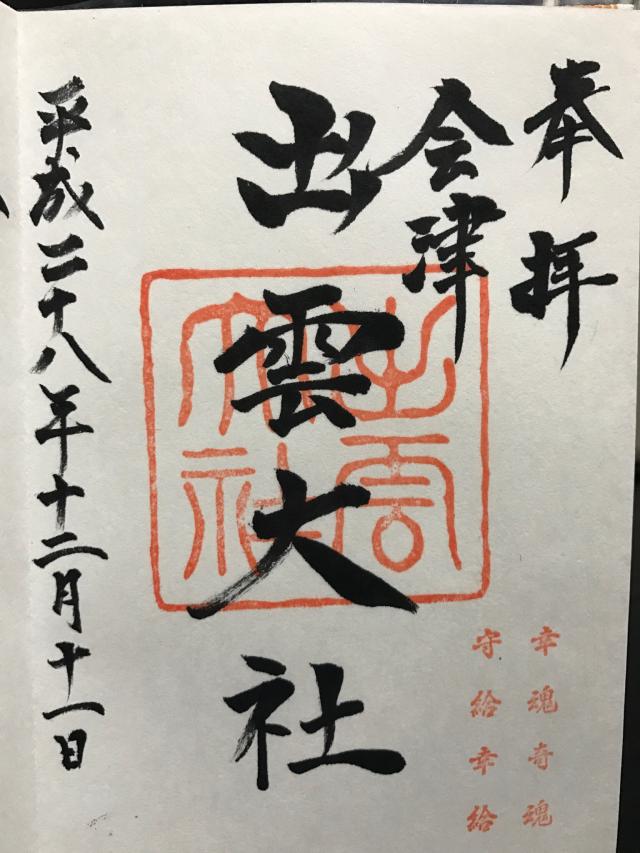 奉拝
会津
出雲大社
平成二十八年十二月十一日
出雲
大社
幸魂奇魂
守給幸給